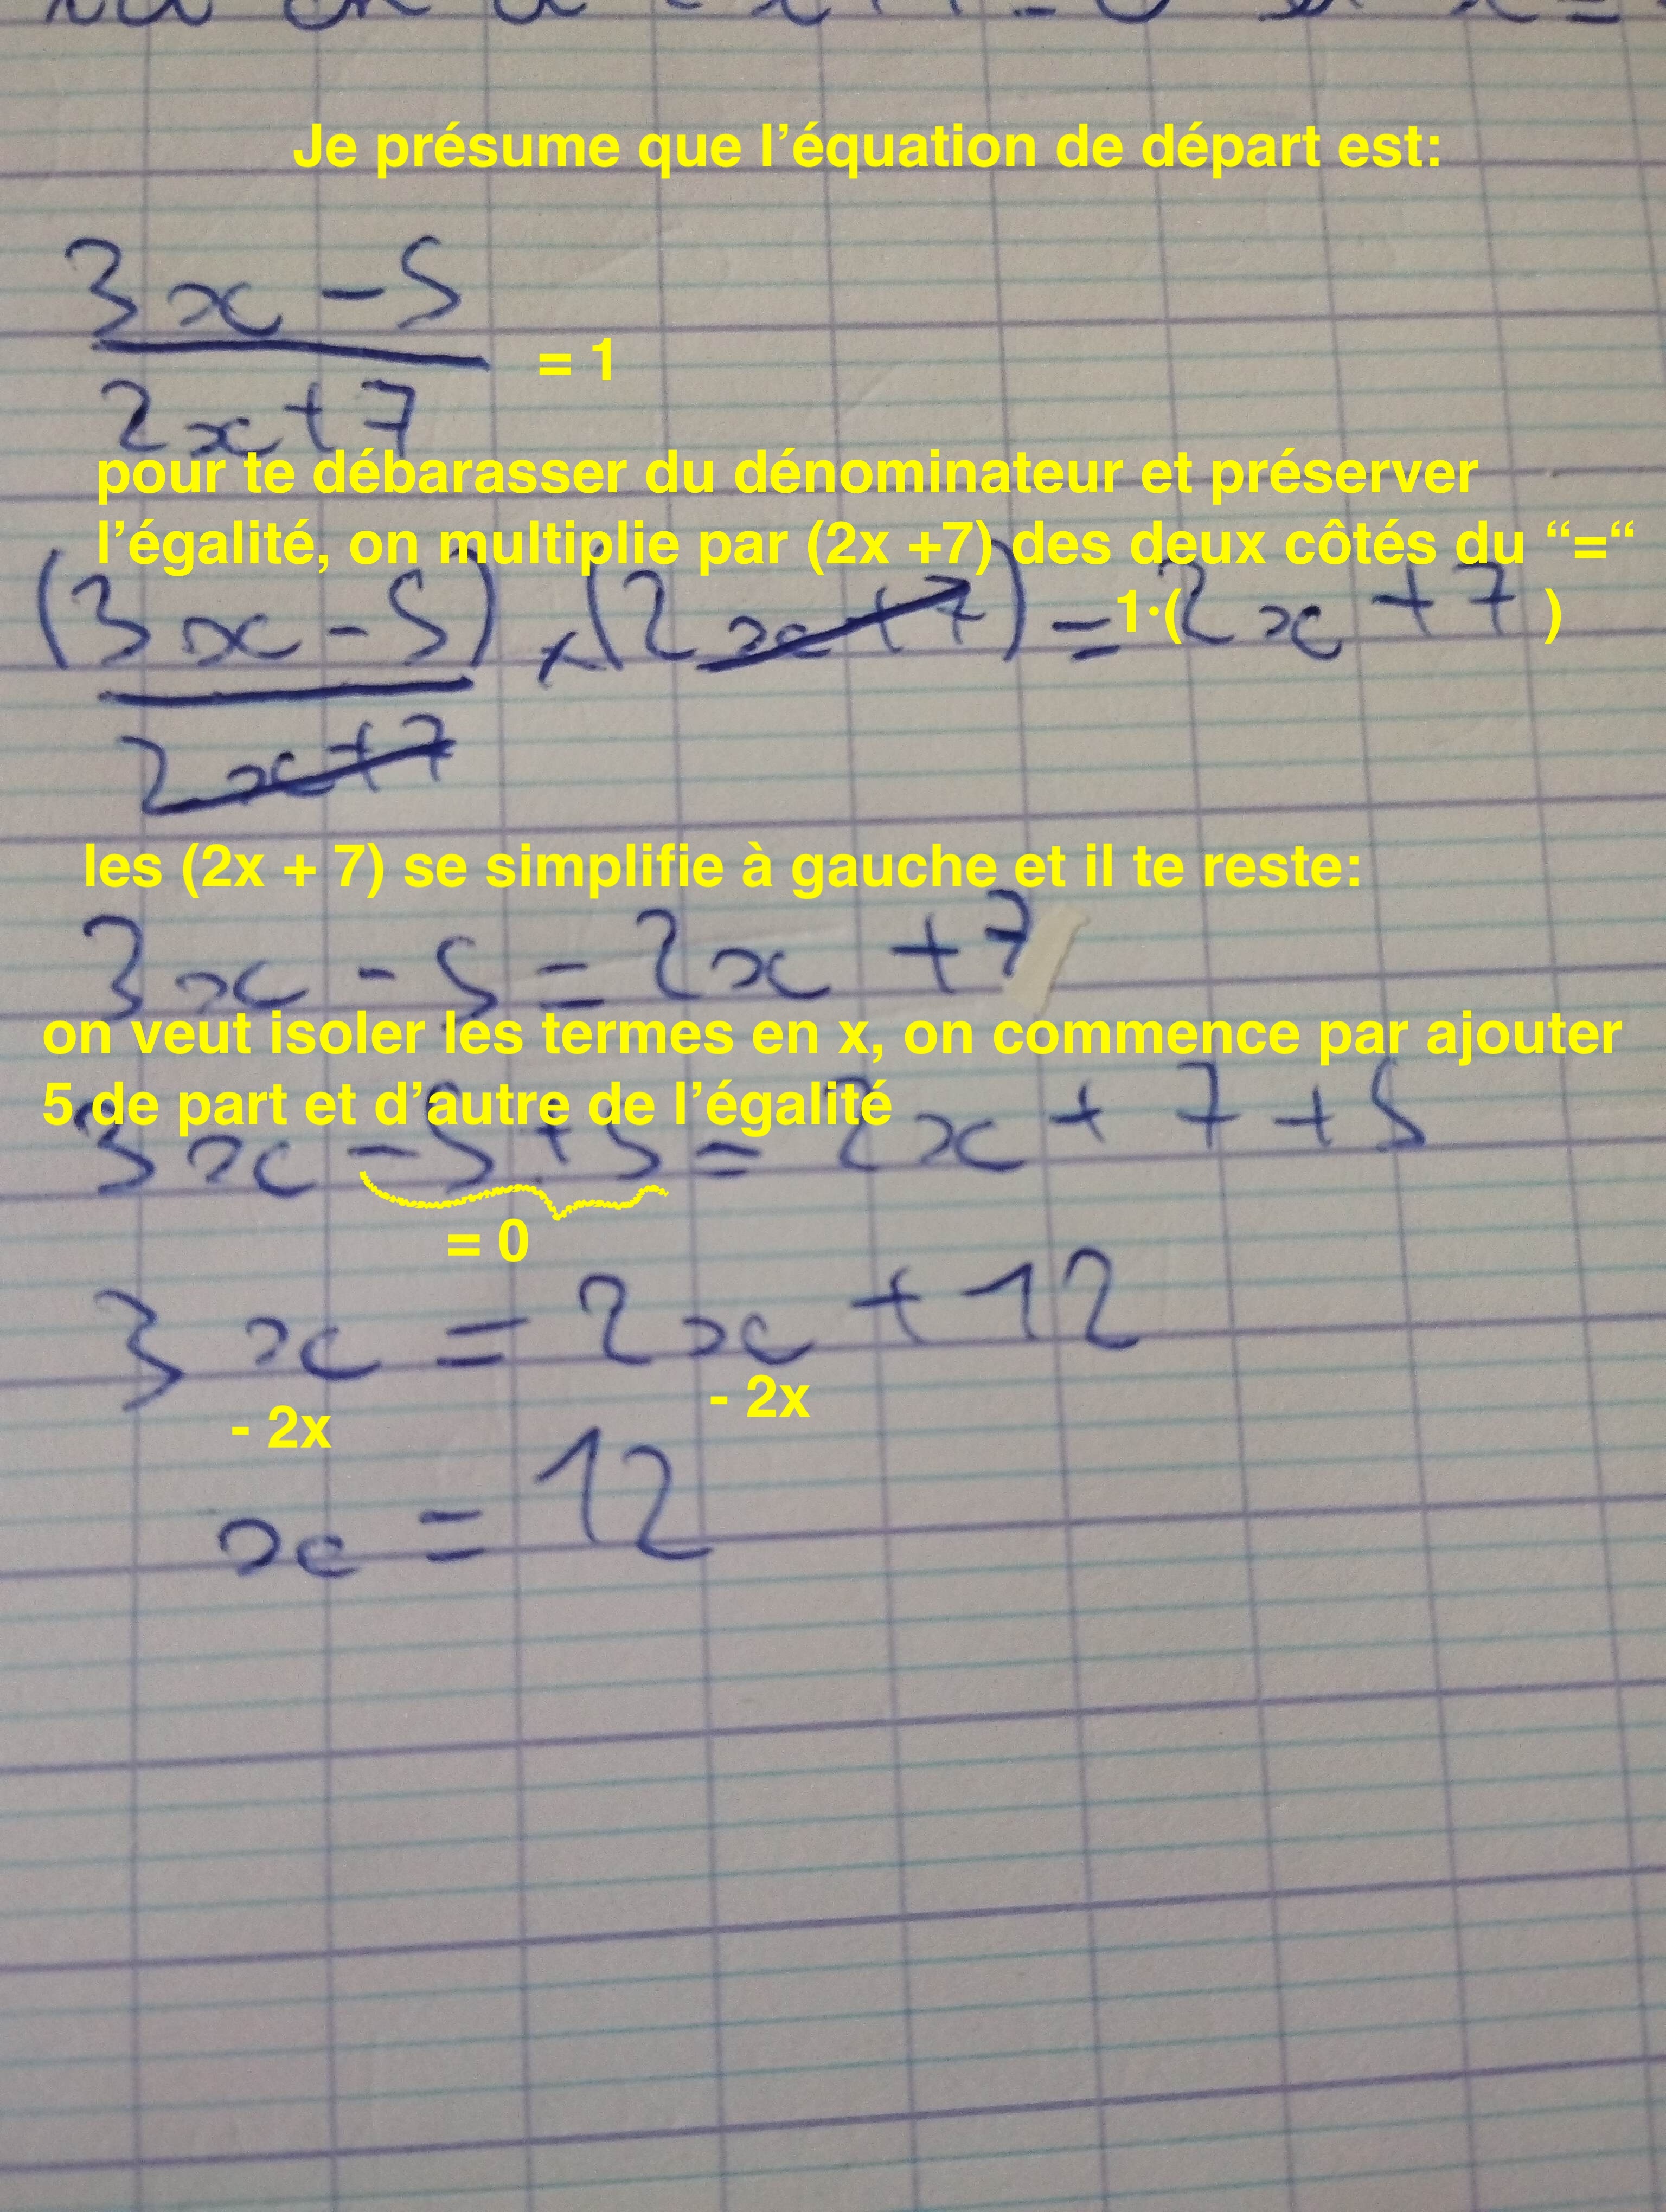 Je présume que l’équation de départ est:
3x - 5
= 1
2x + 7
pour te débarasser du dénominateur et préserver
l’égalité, on multiplie par (2x +7) des deux côtés du “=“
(3x - 5) × (2x + 7) = 1·(2x + 7)
2x + 7
les (2x + 7) se simplifie à gauche et il te reste:
3x - 5 = 2x + 7
on veut isoler les termes en x, on commence par ajouter
5 de part et d’autre de l’égalité
3x - 5 + 5 = 2x + 7 + 5
= 0
3x = 2x + 12
- 2x - 2x
x = 12